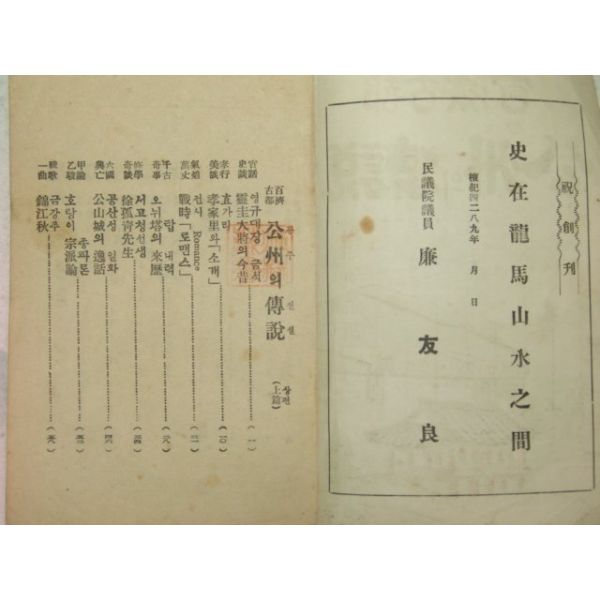 祝創刊
史在龍馬山水之間
檀紀四二八九年 月 日
民議院議員 廉友良
百濟古都 公州의傳說 (上篇)
공주 전설
상편
官話史談 靈圭大將의今昔 (一)
영규대장 금석
孝行美談 孝家里와「소개」 (一〇)
효가리
氣焰萬丈 戰時「로맨스」
전시 Romance
千古奇事 오뉘塔의來歷
탑 내력
修學奇談 徐孤靑先生
서고청선생
六國興亡 公山城의逸話
공산성 일화
甲論乙駁 호랑이宗派論
종파론
戰歌一曲 錦江秋
금강추